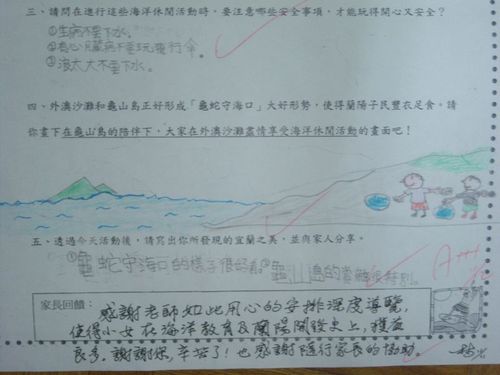 三、請問在進行這些海洋休閒活動時，要注意哪些安全事項，才能玩得開心又安全？
①生病不要下水。
②有心臟病不要玩飛行傘。
③浪太大不要下水。
四、外澳沙灘和龜山島正好形成「龜蛇守海口」大好形勢，使得蘭陽子民豐衣足食。請
你畫下在龜山島的陪伴下，大家在外澳沙灘盡情享受海洋休閒活動的畫面吧！
五、透過今天活動後，請寫出你所發現的宜蘭之美，並向家人分享。
①龜蛇守海口的樣子很好看②龜山島的 很特別。
A++
家長回饋：
感謝老師如此用心的安排深度導覽，
使得小女在海洋教育及蘭陽開發史上，獲益
良多。謝謝您，辛苦了！也感謝隨行家長的協助。